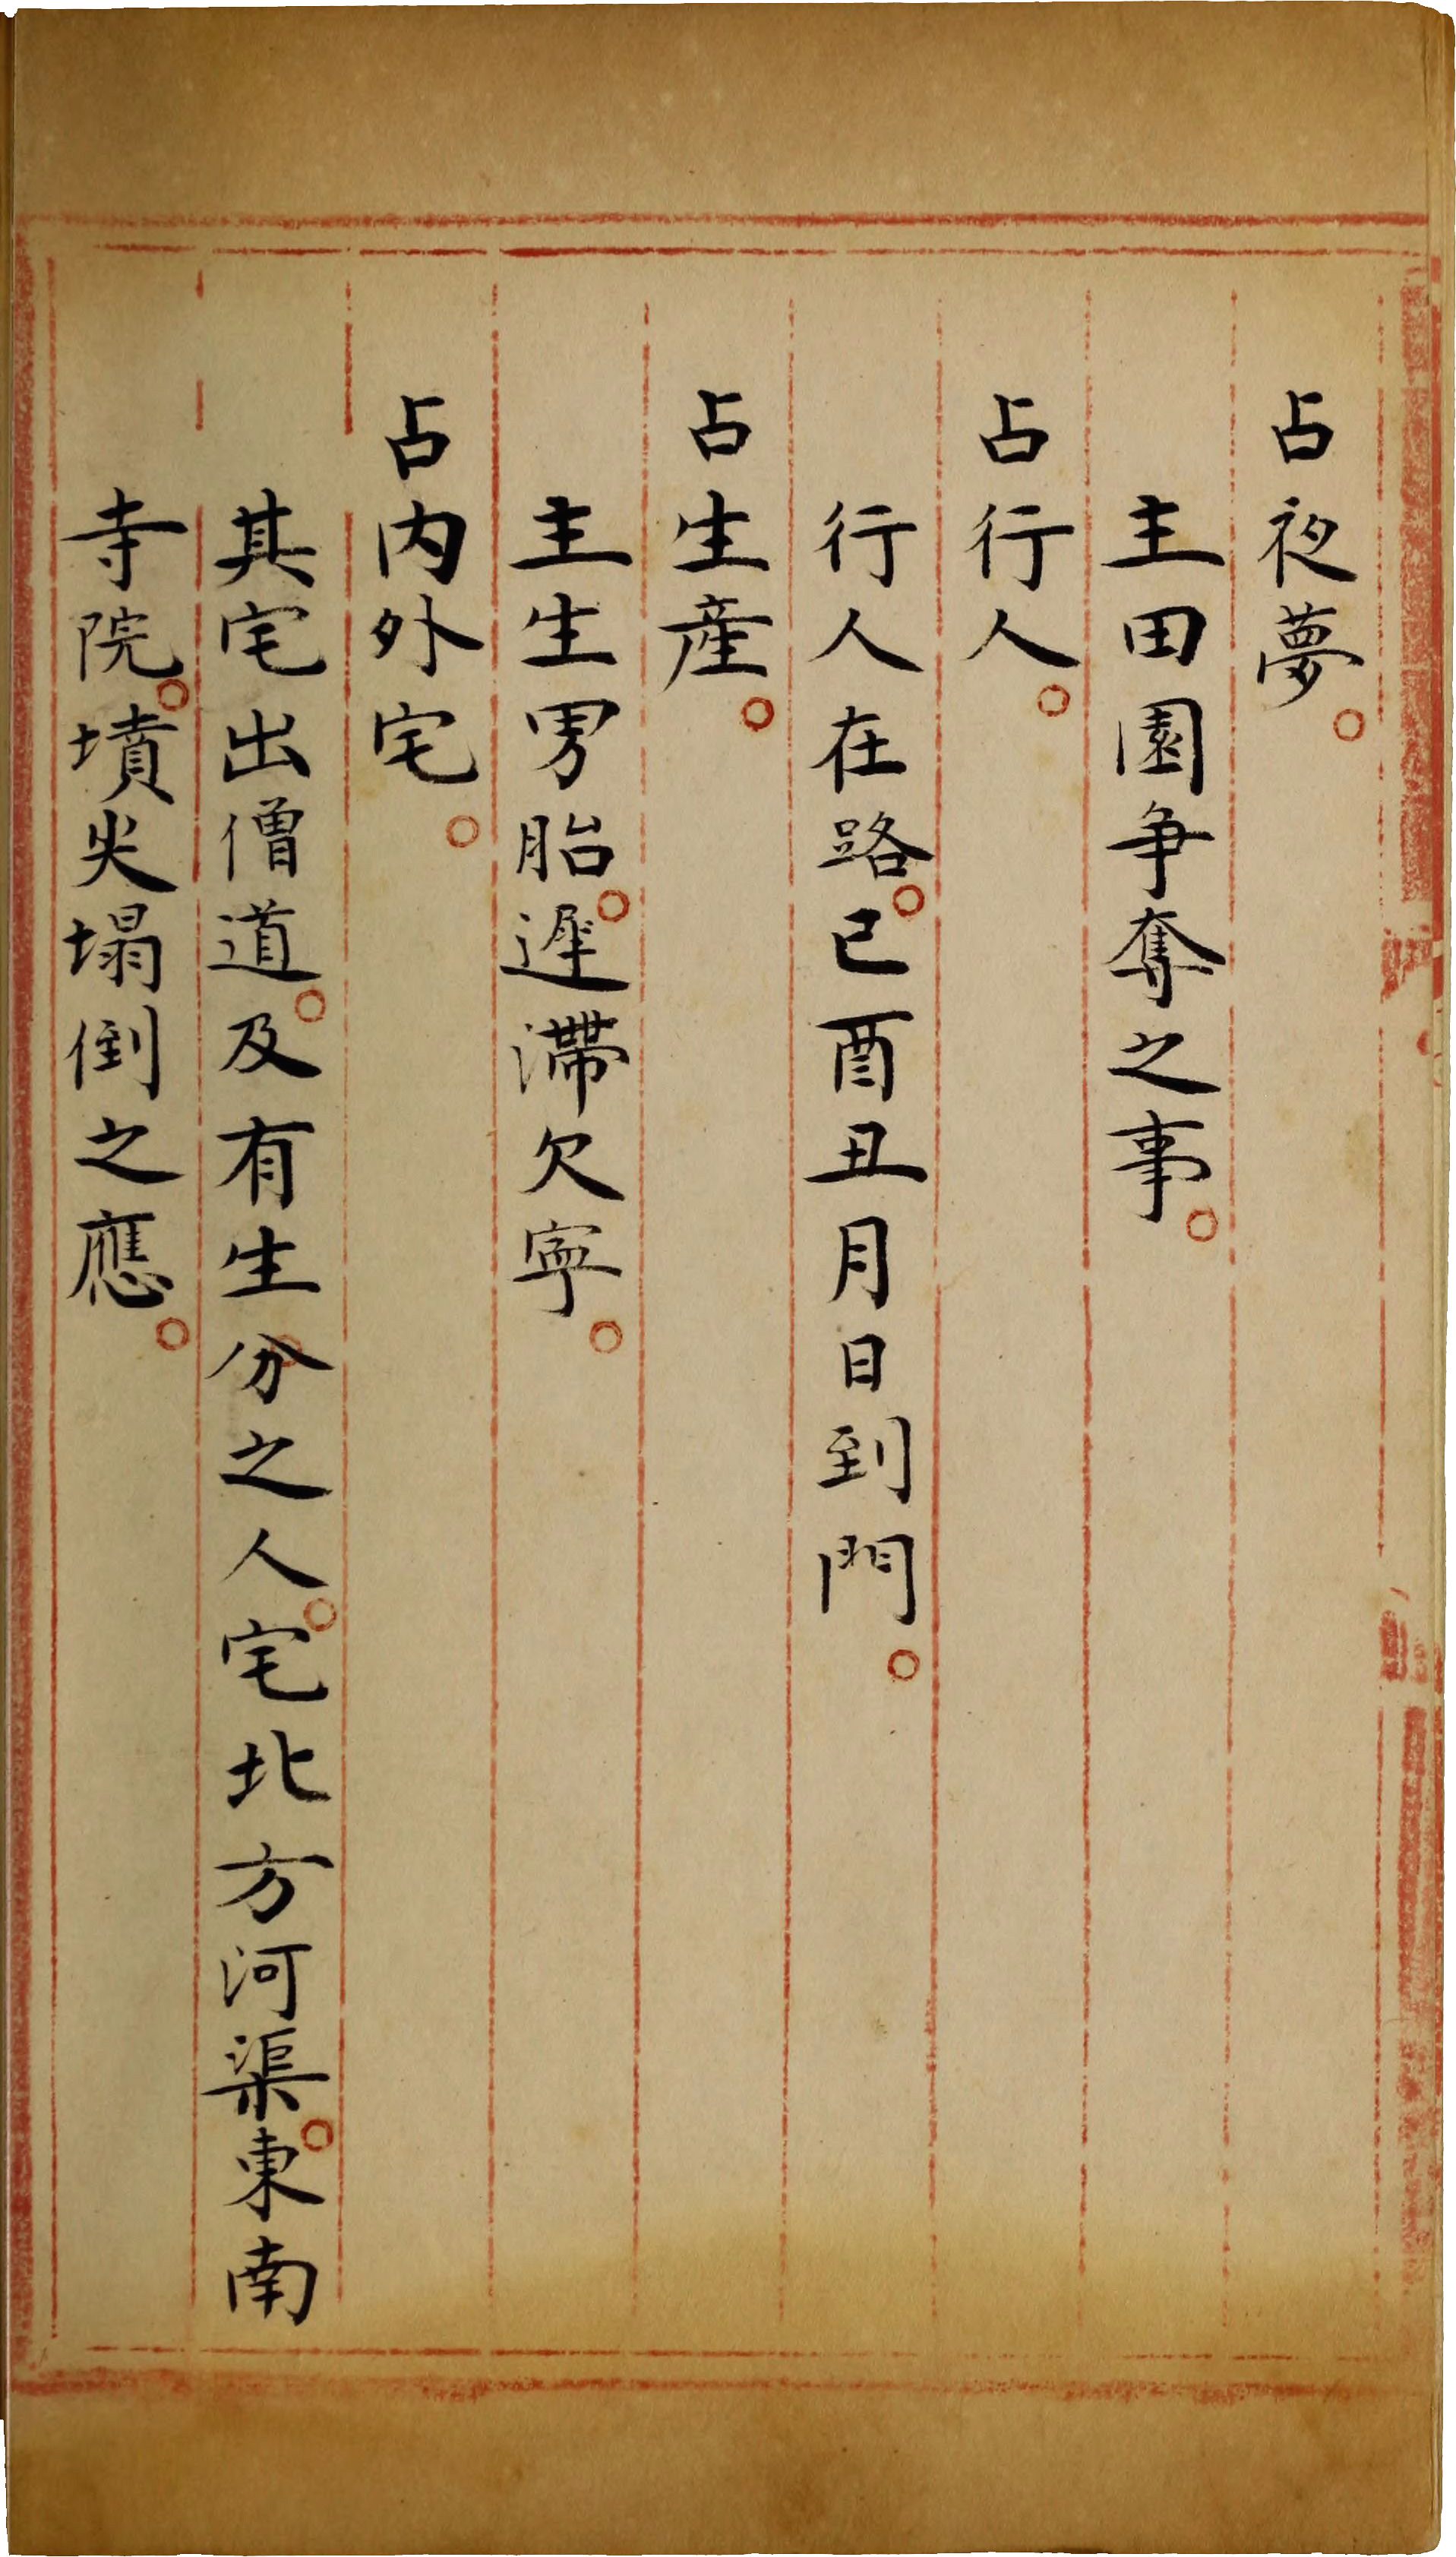 占夜夢。
主田園争奪之事。
占行人。
行人在路。已酉丑月日到門。
占生産。
主生男胎。遲滯欠寧。
占内外宅。
其宅出僧道。及有生分之人。宅北方河渠。東南
寺院。墳尖塌倒之應。